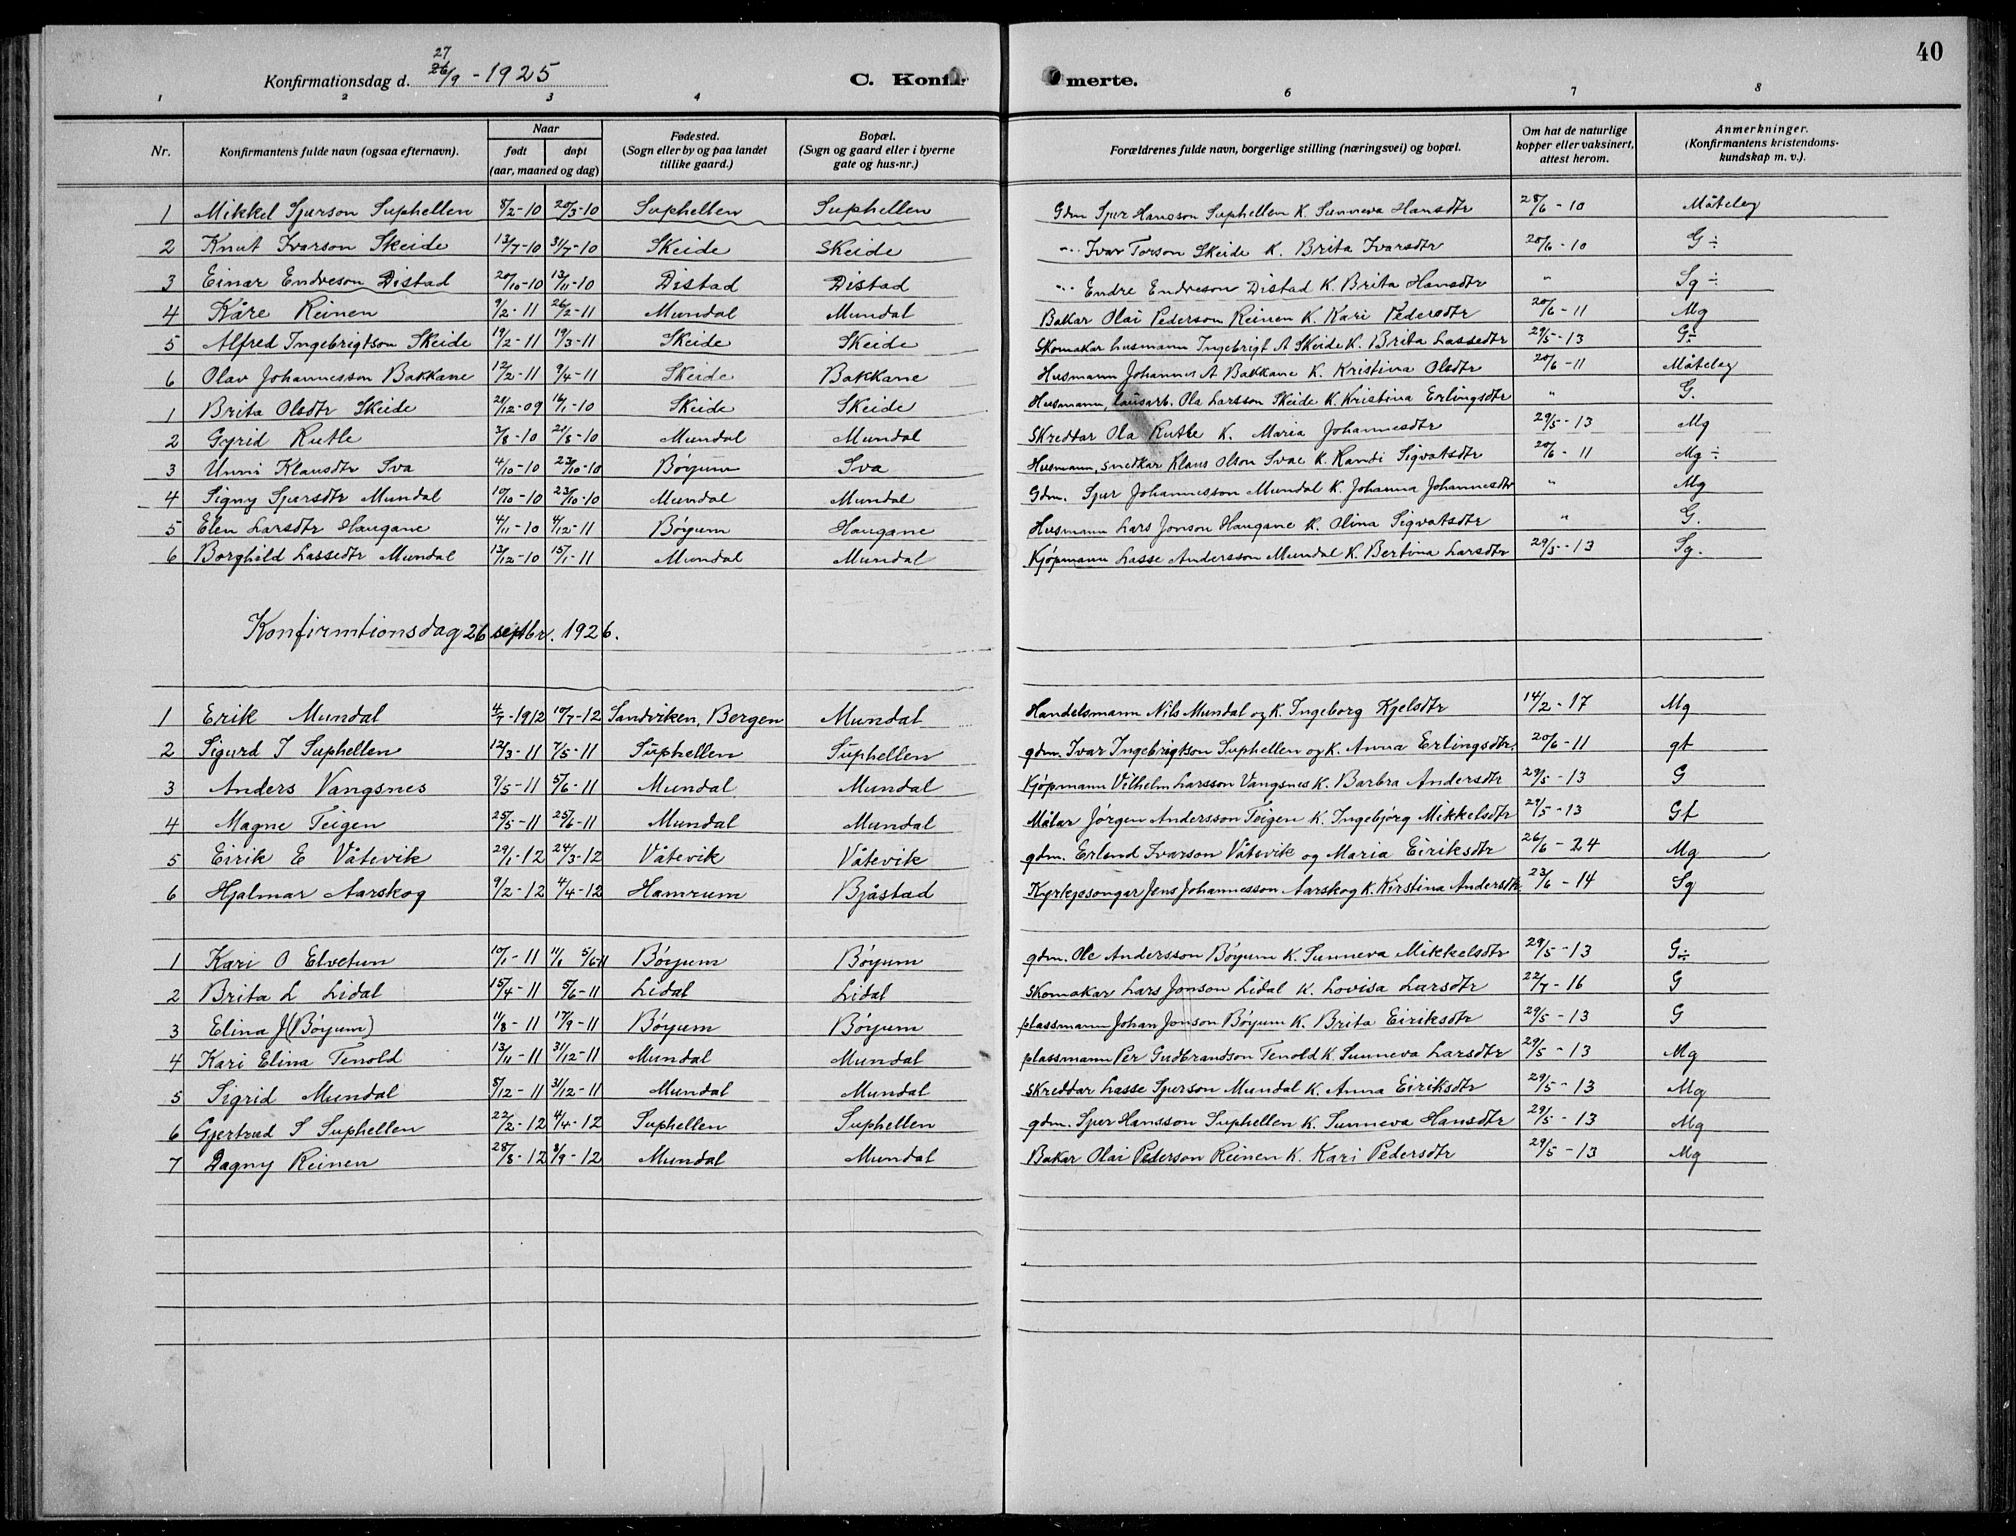 40
27
Konfirmationsdag d. 26/9 - 1925 C. Konfirmerte.
1 2 3 4 6 7 8
Nr. Konfirmantens fulde navn (ogsaa efternavn). Naar født døpt (aar, maaned og dag) Fødested. (Sogn eller by og paa landet tillike gaard.) Bopæl. (Sogn og gaard eller i byerne gate og hus-nr.) Forældrenes fulde navn, borgerlige stilling (næringsvei) og bopæl. Om hat de naturlige kopper eller vaksinert, attest herom. Anmerkninger. (Konfirmantens kristendomskundskap m. v.).
1 Mikkel Sjurson Suphellen 8/2-10 20/3-10 Suphellen Suphellen Gdm Sjur Hansson Suphellen K. Sunneva Hansdtr 28/6-10 Måteleg
2 Knut Ivarson Skeide 13/7-10 31/7-10 Skeide Skeide -"- Ivar Torson Skeide K. Brita Ivarsdtr 20/6-10 G÷
3 Einar Endreson Distad 20/10-10 13/11-10 Distad Distad -"- Endre Endreson Distad K. Brita Hansdtr " Sg÷
4 Kåre Reinen 9/2-11 26/2-11 Mundal Mundal Bakar Olai Pederson Reinen K. Kari Pedersdtr 20/6-11 Mg
5 Alfred Ingebrigtson Skeide 19/2-11 19/3-11 Skeide Skeide Skomakar husmann Ingebrigt A Skeide K. Brita Lassedtr 29/5-13 G÷
6 Olav Johannesson Bakkane 12/2-11 9/4-11 Skeide Bakkane Husmann Johannes A Bakkane K. Kristina Olsdtr 20/6-11 Måteleg
1 Brita Olsdtr Skeide 21/12-09 16/1-10 Skeide Skeide Husmann, lausarb. Ola Larsson Skeide K. Kristina Erlingsdtr " G.
2 Gyrid Rutle 3/8-10 21/8-10 Mundal Mundal Skreddar Ola Rutle K. Maria Johannesdtr 29/5-13 Mg
3 Unni Klausdtr Sva 4/10-10 23/10-10 Bøyum Sva Husmann, snedkar Klaus Olson Svae K. Randi Sigvatsdtr 20/6-11 Mg÷
4 Signy Sjursdtr Mundal 10/10-10 23/10-10 Mundal Mundal Gdm. Sjur Johannesson Mundal K. Johanna Johannesdtr " Mg
5 Elen Larsdtr Haugane 4/11-10 4/12-11 Bøyum Haugane Husmann Lars Jonson Haugane K. Olina Sigvatsdtr " G.
6 Borghild Lassedtr Mundal 13/12-10 15/1-11 Mundal Mundal Kjøpmann Lasse Andersson Mundal K. Bertina Larsdtr 29/5-13 Sg.
Konfirmtionsdag 26 septbr. 1926.
1 Erik Mundal 4/7-1912 10/7-12 Sandviken, Bergen Mundal Handelsmann Nils Mundal og K. Ingeborg Kjelsdtr 14/2-17 Mg
2 Sigurd I Suphellen 12/3-11 7/5-11 Suphellen Suphellen gdm. Ivar Ingebrigtson Suphellen og K. Anna Erlingsdtr. 20/6-11 gt
3 Anders Vangsnes 9/5-11 5/6-11 Mundal Mundal Kjøpmann Vilhelm Larsson Vangsnes K. Barbra Andersdtr 29/5-13 G
4 Magne Teigen 25/5-11 25/6-11 Mundal Mundal Målar Jørgen Andersson Teigen K. Ingebjørg Mikkelsdtr 29/5-13 Gt
5 Eirik E Våtevik 29/1-12 24/3-12 Våtevik Våtevik gdm. Erlend Ivarson Våtevik og Maria Eiriksdtr 26/6-24 Mg
6 Hjalmar Aarskog 9/2-12 4/4-12 Hamrum Bjåstad Kyrkjesongar Jens Johannesson Aarskog K. Kirstina Andersdtr. 23/6-14 Sg
1 Kari O Elvetun 10/1-11 5/6 11 Bøyum Bøyum gdm. Ole Andersson Bøyum K. Sunneva Mikkelsdtr 29/5-13 G÷
2 Brita L Lidal 15/4-11 5/6-11 Lidal Lidal Skomakar Lars Jonson Lidal K. Lovisa Larsdtr 22/7-16 G
3 Elina J (Bøyum) 11/8-11 17/9-11 Bøyum Bøyum plassmann Johan Jonson Bøyum K. Brita Eiriksdtr 29/5-13 G
4 Kari Elina Tenold 13/11-11 31/12-11 Mundal Mundal plassmann Per Gudbrandson Tenold K. Sunneva Larsdtr 29/5-13 Mg
5 Sigrid Mundal 8/12-11 31/12-11 Mundal Mundal Skreddar Lasse Sjurson Mundal K. Anna Eiriksdtr 29/5-13 Mg
6 Gjertrud S Suphellen 22/2-12 4/4-12 Suphellen Suphellen gdm. Sjur Hansson Suphellen K. Sunneva Hansdtr 29/5-13 Mg
7 Dagny Reinen 28/8-12 8/9-12 Mundal Mundal Bakar Olai Pederson Reinen K. Kari Pedersdtr 29/5-13 Mg